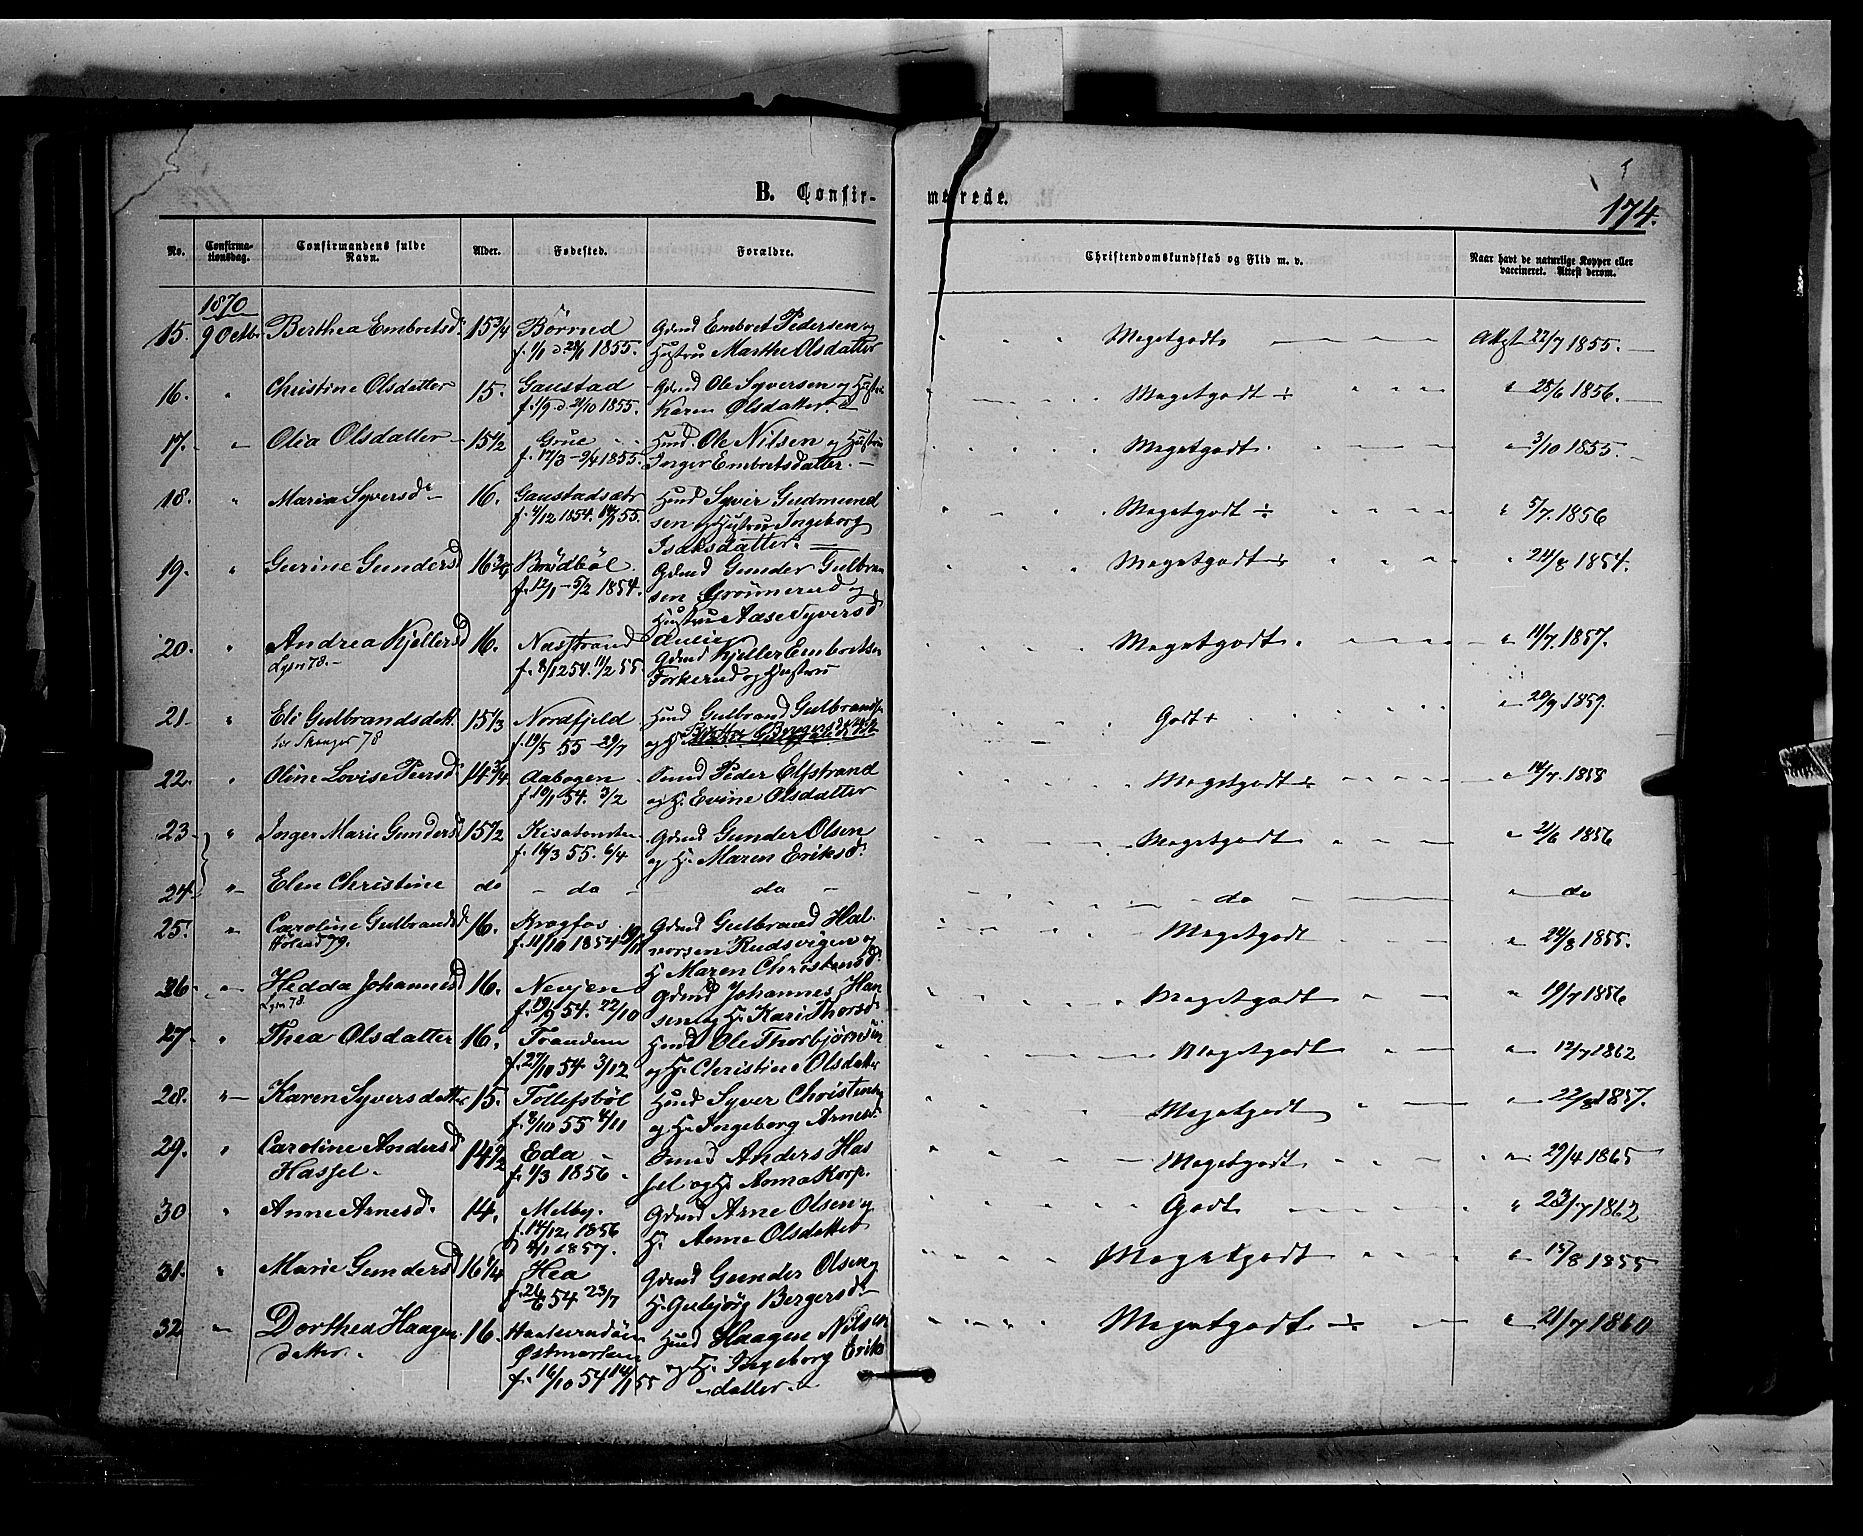 174.
B. Confirmerede.
No. Confirmationsdag. Confirmandens fulde Navn. Alder. Fødested. Forældre. Christendomskundskab og Flid m. v. Naar havt de naturlige Kopper eller vaccineret. Attest derom.
1870
15. 9 Octbr Berthea Embretsd. 15 3/4 Börrud Gdmd Embret Pedersen og Megetgodt Attest 22/7 1855.
f. 1/1 d. 28/1 1855. Hustru Marthe Olsdatter
16. " Christine Olsdatter 15. Gaustad Gdmd Ole Syversen og Hustru Megetgodt ÷ " 25/6 1856.
f. 1/9 d. 21/10 1855. Karen Olsdatter.
17. " Olia Olsdatter 15 1/2 Grue Hmd. Ole Nilsen og Hustru Megetgodt " 3/10 1855.
f. 17/3 - 9/4 1855. Inger Embretsdatter.
18. " Maria Syversd. 16. Gaustadsætr Hmd Syver Gudmund Megetgodt ÷ " 5/7. 1856
f. 4/12 1854. 14/1 55. sen og Hustru Ingeborg
Isaksdatter.
19. " Gurine Gundersd 16 3/4 Brödböl Gdmd Gunder Gulbran Megetgodt ÷ " 24/8 1854.
f. 12/1 - 5/2 1854. sen Grönnerud og
Hustru Aase Syversd
20. " Andrea Kjellersd 16. Næsstrand Megetgodt " 11/7. 1857.
Lysn 78. f. 8/12 54. 11/2 55. Gdmd Kjeller Embretsen
Forkerud og Hustru
21. " Eli Gulbrandsdatt 15 1/3 Nordfjeld Hmd Gulbrand Gulbrands Godt + " 20/9 1859.
78 f. 19/5 55 - 29/7 og H.
22. " Oline Lovise Peersd 14 3/4 Aabogen Smed Peder Elfstrand Megetgodt ÷ " 14/7. 1858
f. 19/1 54. 3/2 og H. Evine Olsdatter
23. " Inger Marie Gundersd 15 1/2 Gdmd Gunder Olsen Megetgodt " 2/6 1856
f. 16/3 55. 6/4 og H. Maren Eriksd.
24. " Elen Christine do - do - do - do - " do
25. " Caroline Gulbrandsd 16. Brogfos Gdmd Gulbrand Hal- Megetgodt " 24/8 1855.
79. f. 11/10 1854 19/11 vorsen Rudsvigen og
H Maren Christensd.
26. " Hedda Johannesd 16. Gdmd Johannes Han Megetgodt " 19/7 1856
Lysn 78. f. 19/9 54. 22/10 sen og H. Kari Thorsd
27. " Thea Olsdatter 16. Trandem Hmd Ole Thorbjørnsen Megetgodt " 12/7 1862
f. 27/10 54 3/12 og H. Christine Olsdatter
28. " Karen Syversdatter 15. Tollefsböl Hmd Syver Christensen Megetgodt " 22/8 1857.
f. 2/10 55 4/11 og H. Ingeborg Arnesd
29. " Caroline Andersd 14 1/2 Eda Smed Anders Has Megetgodt " 29/4 1865
Hassel. f. 1/3 1856 sel og H. Anna Korp.
30 " Anne Arnesd. 14. Melby. Gdmd Arne Olsen og Godt " 23/7 1862
f. 14/12 1856 H. Anne Olsdatter
d 4/1 1857.
31. " Marie Gundersd 16 1/4 Hea Gdmd Gunder Olsen og Megetgodt " 15/8 1855
f. 26/6 54 23/7 H. Gubjörg Bergersd
32 " Dorthea Haagen 16. Hmd Haagen Nilsen Megetgodt ÷ " 21/7 1860
datter. Østmarken og H. Ingeborg Eriks
f. 16/10 54 14/1 55 datter.